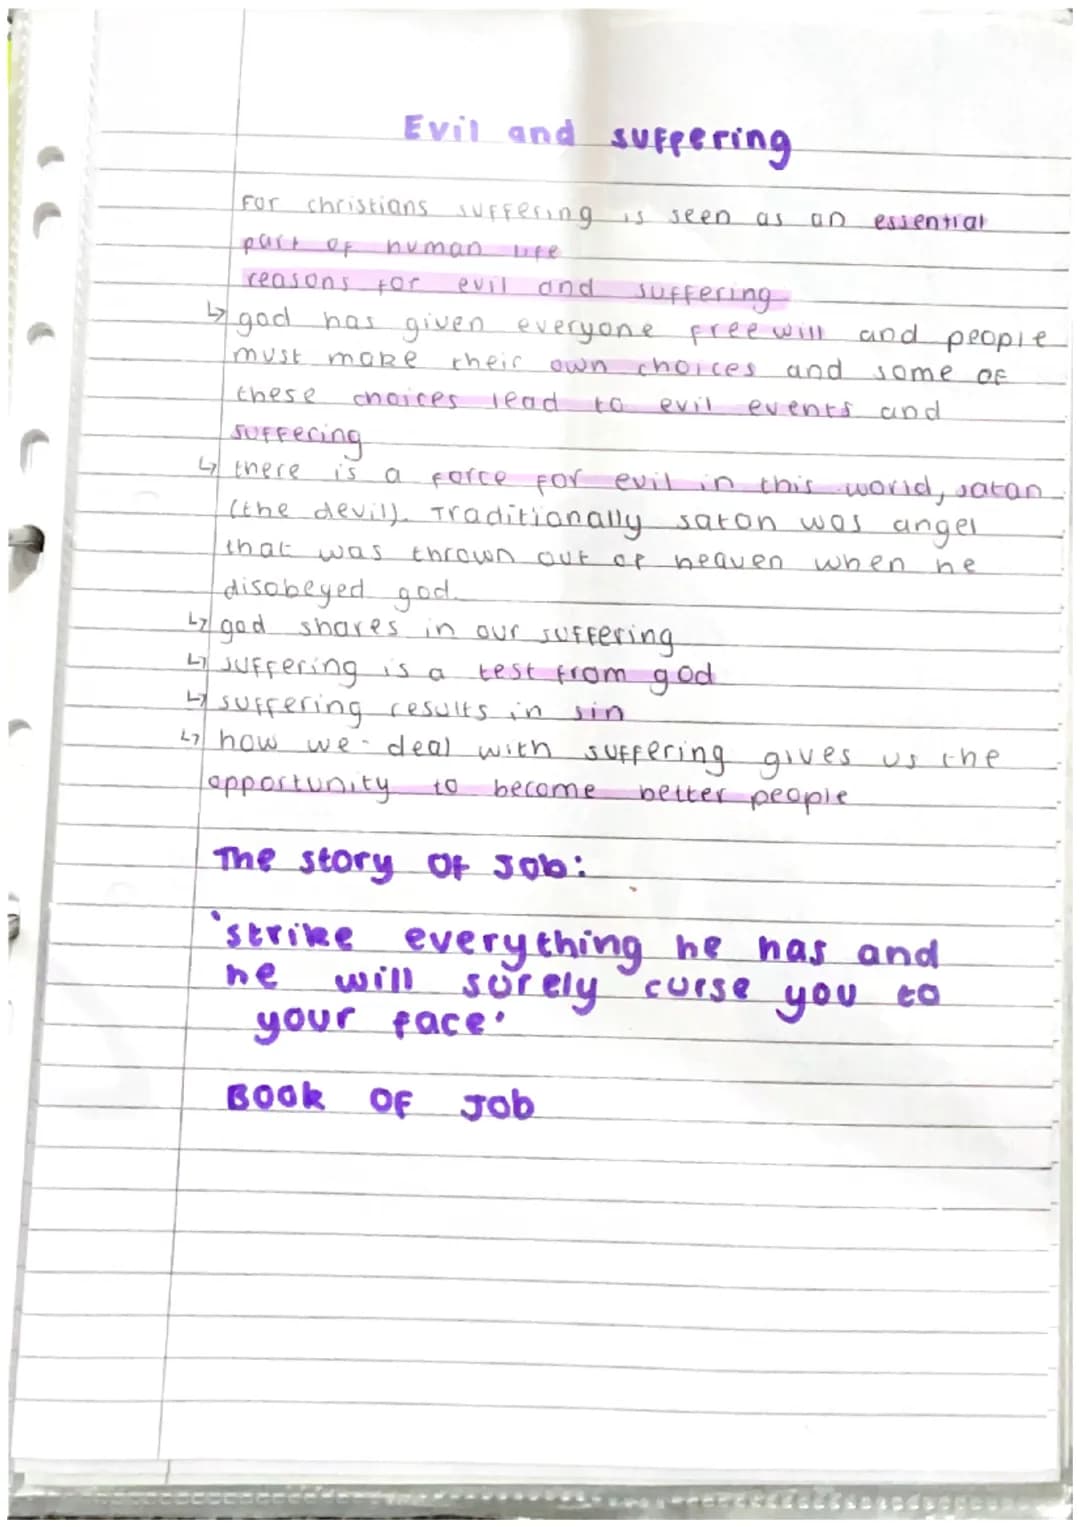 Evil and suffering
For christians suffering is seen as an essential
part of human life
reasons for evil and suffering
↳ god has given everyone free will and people
must make their own choices and some of
these choices lead to evil events and
suffering
↳ there is a force for evil in this world, satan
(the devil). Traditionally satan was angel
that was thrown out of heaven when he
disobeyed god.
↳ god shares in our suffering
↳ suffering is a test from god
↳ suffering results in sin
↳ how we deal with suffering gives us the
opportunity to become better people
The story of Job:
'strike everything he has and
he will surely curse you to
your face'
Book of Job